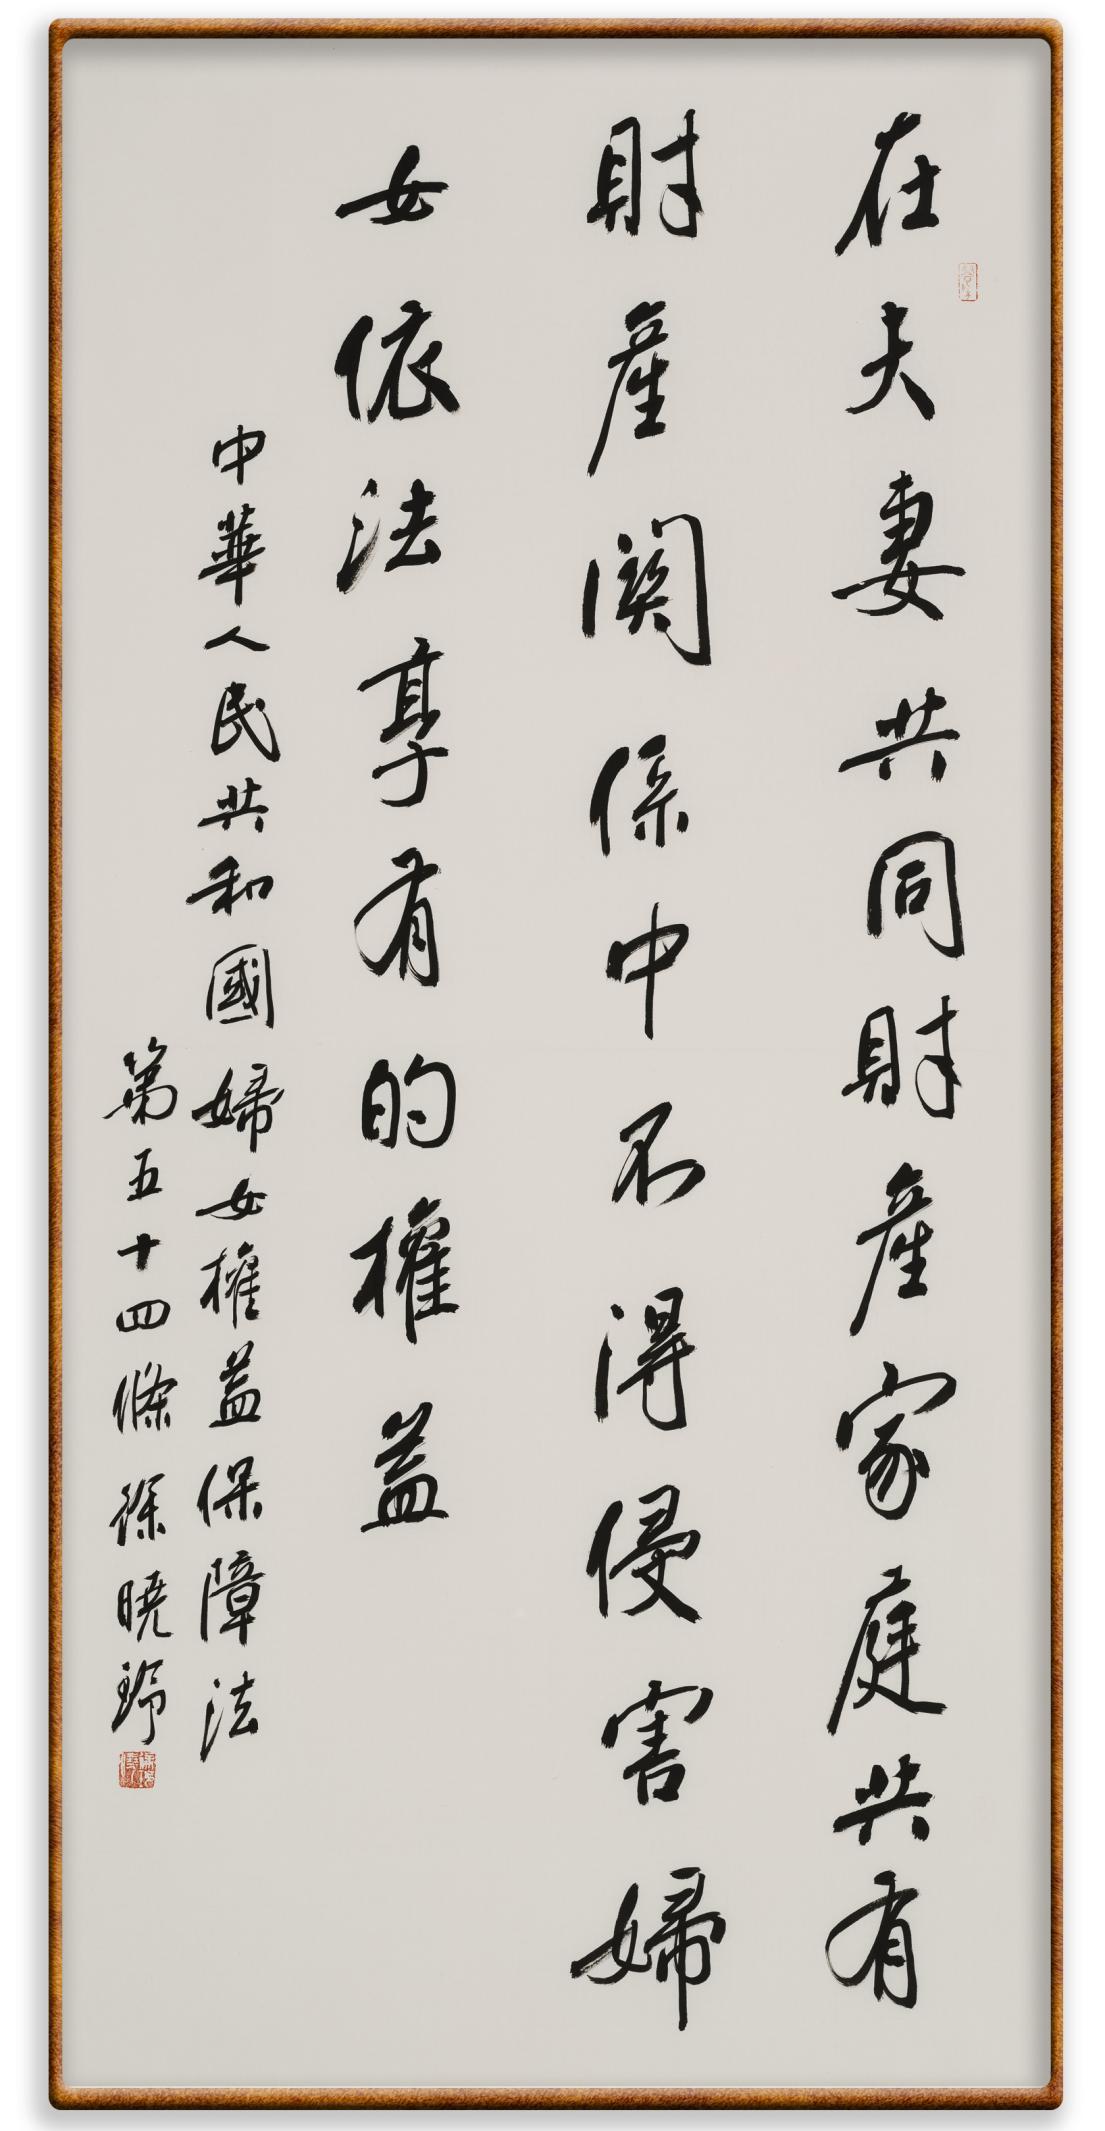 在夫妻共同財產家庭共有
財產関係中不得侵害婦
女依法享有的權益
中華人民共和國婦女權益保障法
第五十四條 徐曉玲